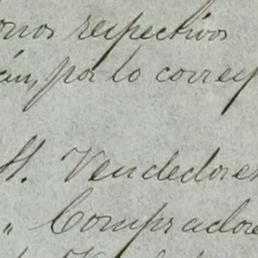 onos respectivos
cán, por lo corresp
H. Vendedores
" Compradore